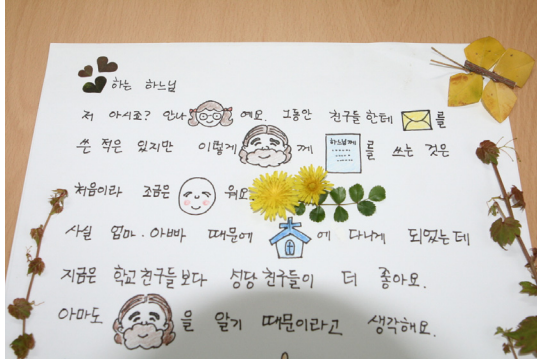 하는 하느님
저 아시죠? 안나 예요. 그동안 친구들한테 를
쓴 적은 있지만 이렇게 께 하느님께 를 쓰는 것은
처음이라 조금은 워요
사실 엄마·아빠 때문에 에 다니게 되었는데
지금은 학교 친구들보다 성당 친구들이 더 좋아요.
아마도 을 알기 때문이라고 생각해요.